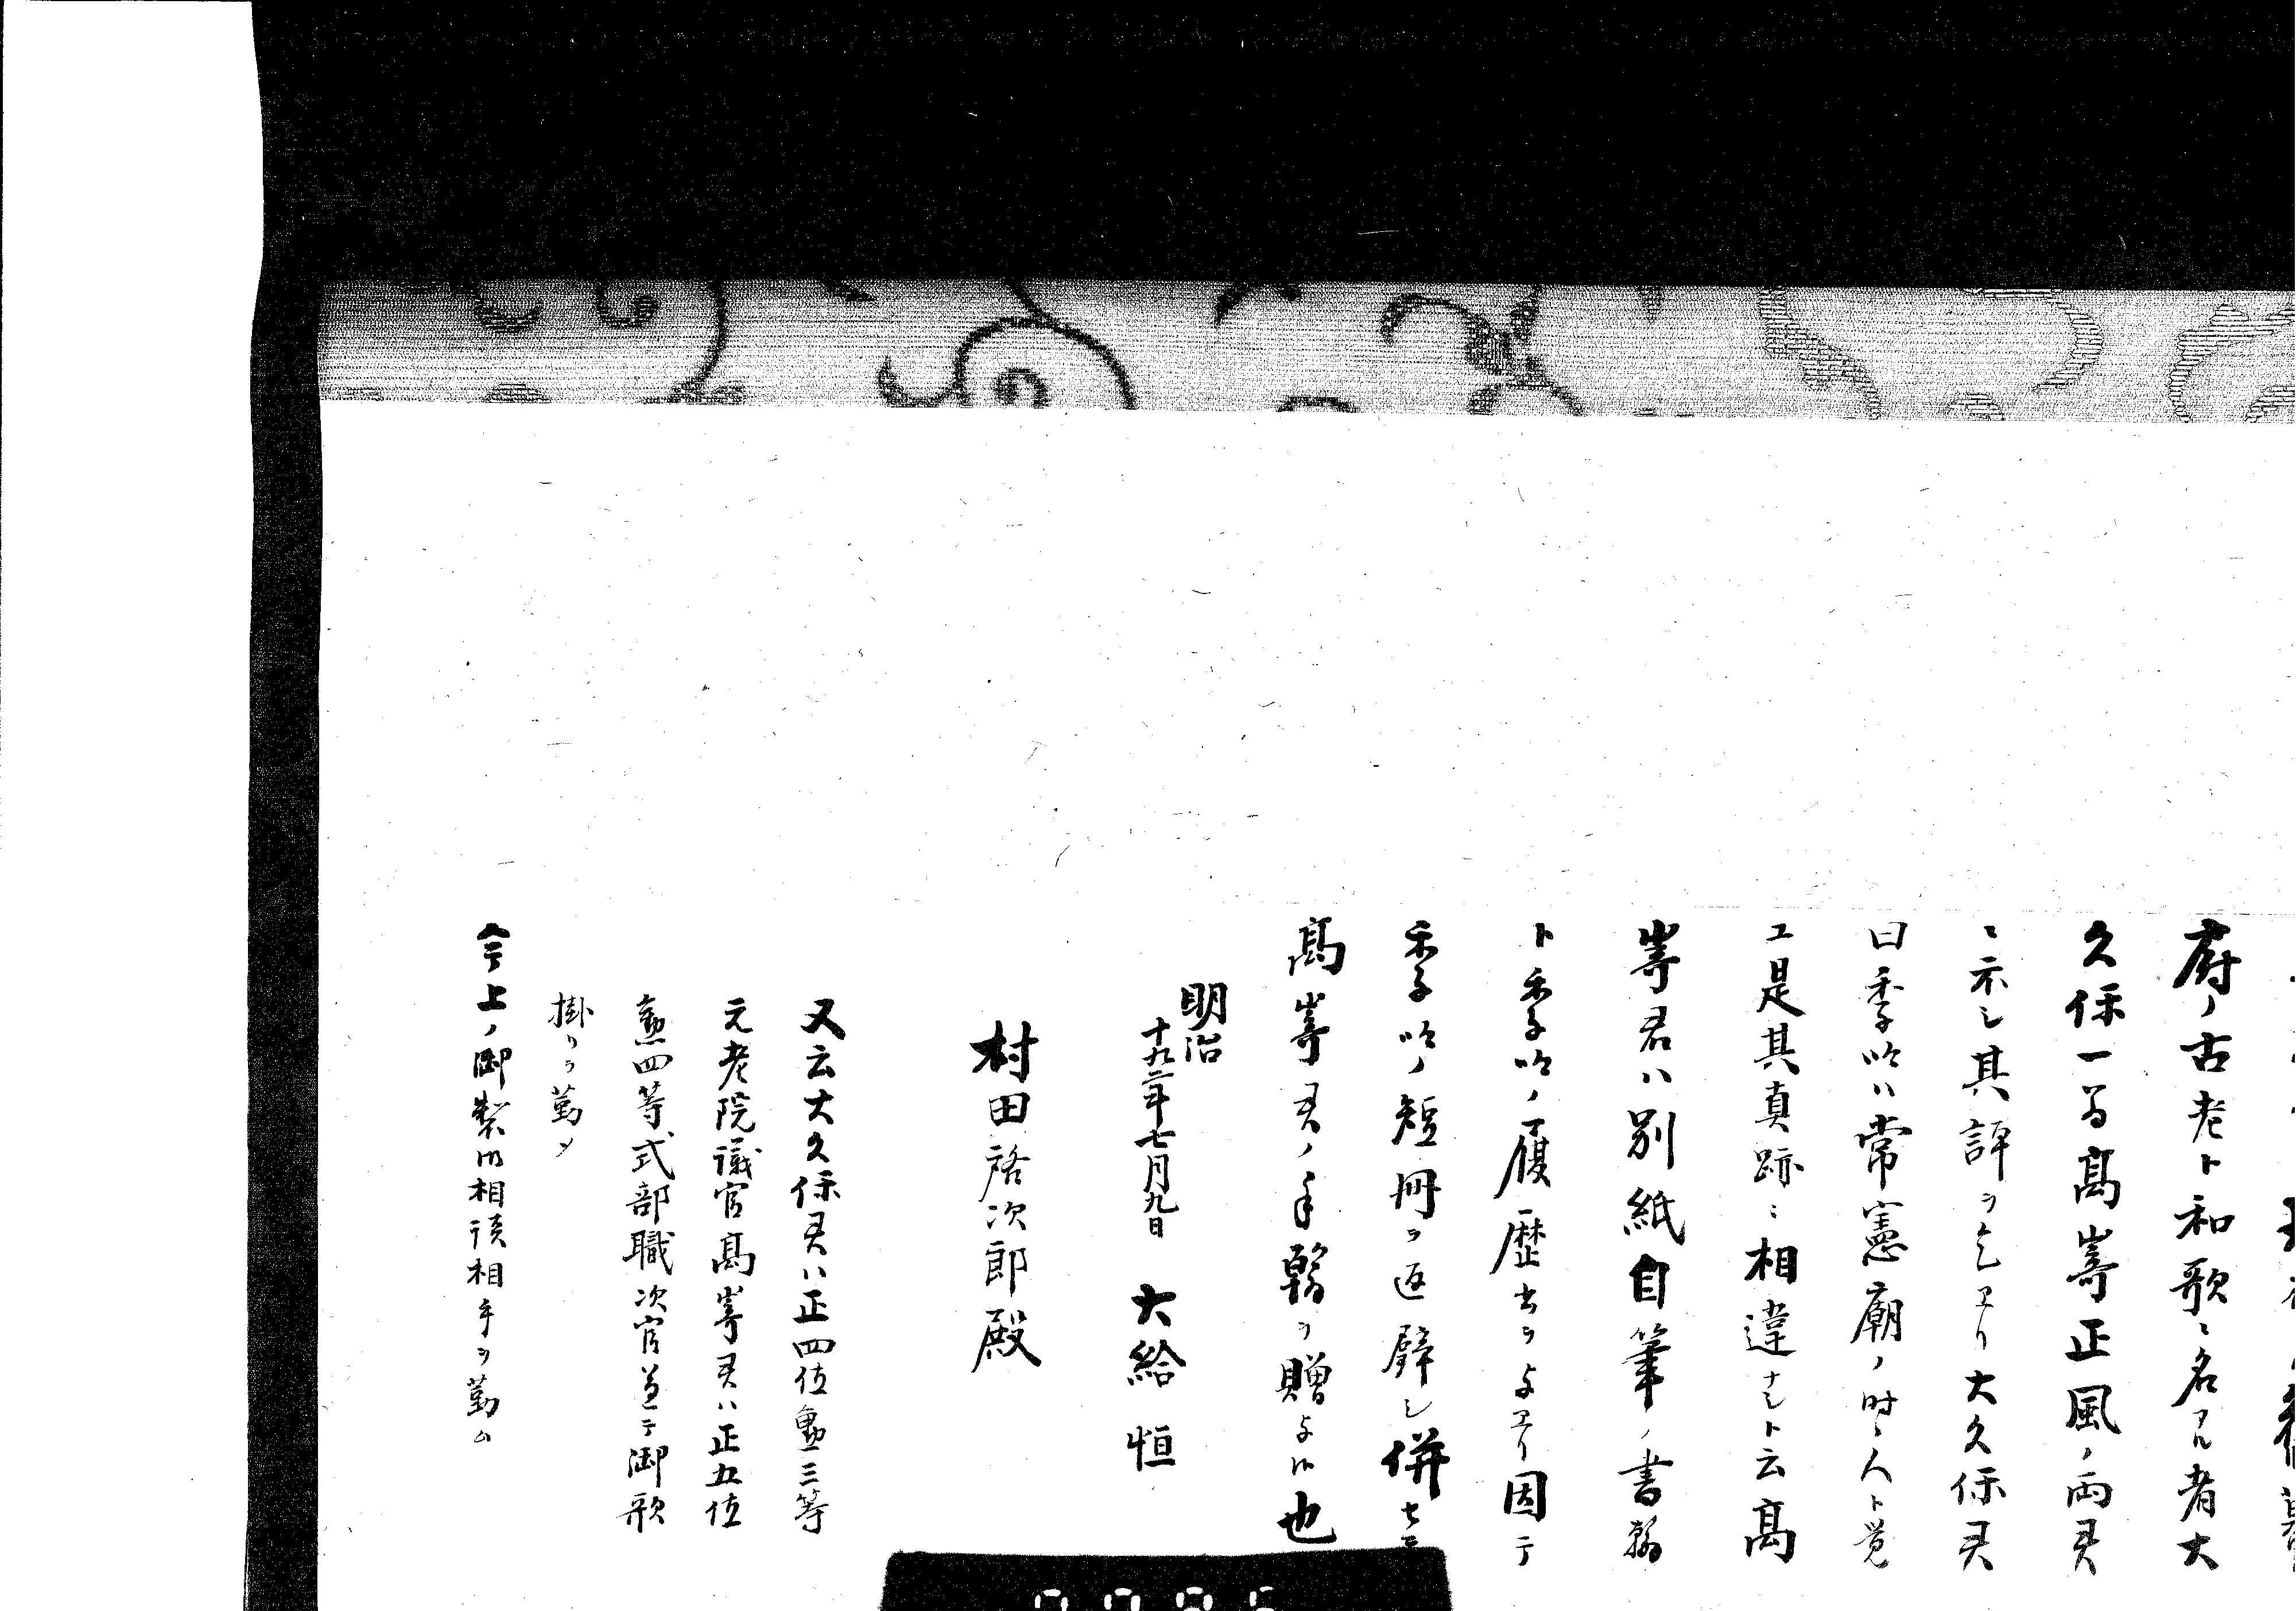 府ノ古老ト和歌ニ名アル者大
久保一翁高崎正風ノ両君
ニ示シ其評ヲ乞エリ大久保君
曰季吟ハ常憲廟ノ時ノ人ト覚
エ是其真跡ニ相違ナシト云高
崎君ハ別紙自筆ノ書翰
ト季吟ノ履歴書ヲ与エリ因テ
季吟ノ短冊ヲ返璧シ併セテ
高崎君ノ手翰ヲ贈与スル也
明治
十九年七月九日 大給 恒
村田 次郎殿
又云大久保君ハ正四位勲三等
元老院議官高崎君ハ正五位
勲四等式部職次官兼テ御歌
掛リヲ勤メ
今上ノ御製 相談相手ヲ勤ム